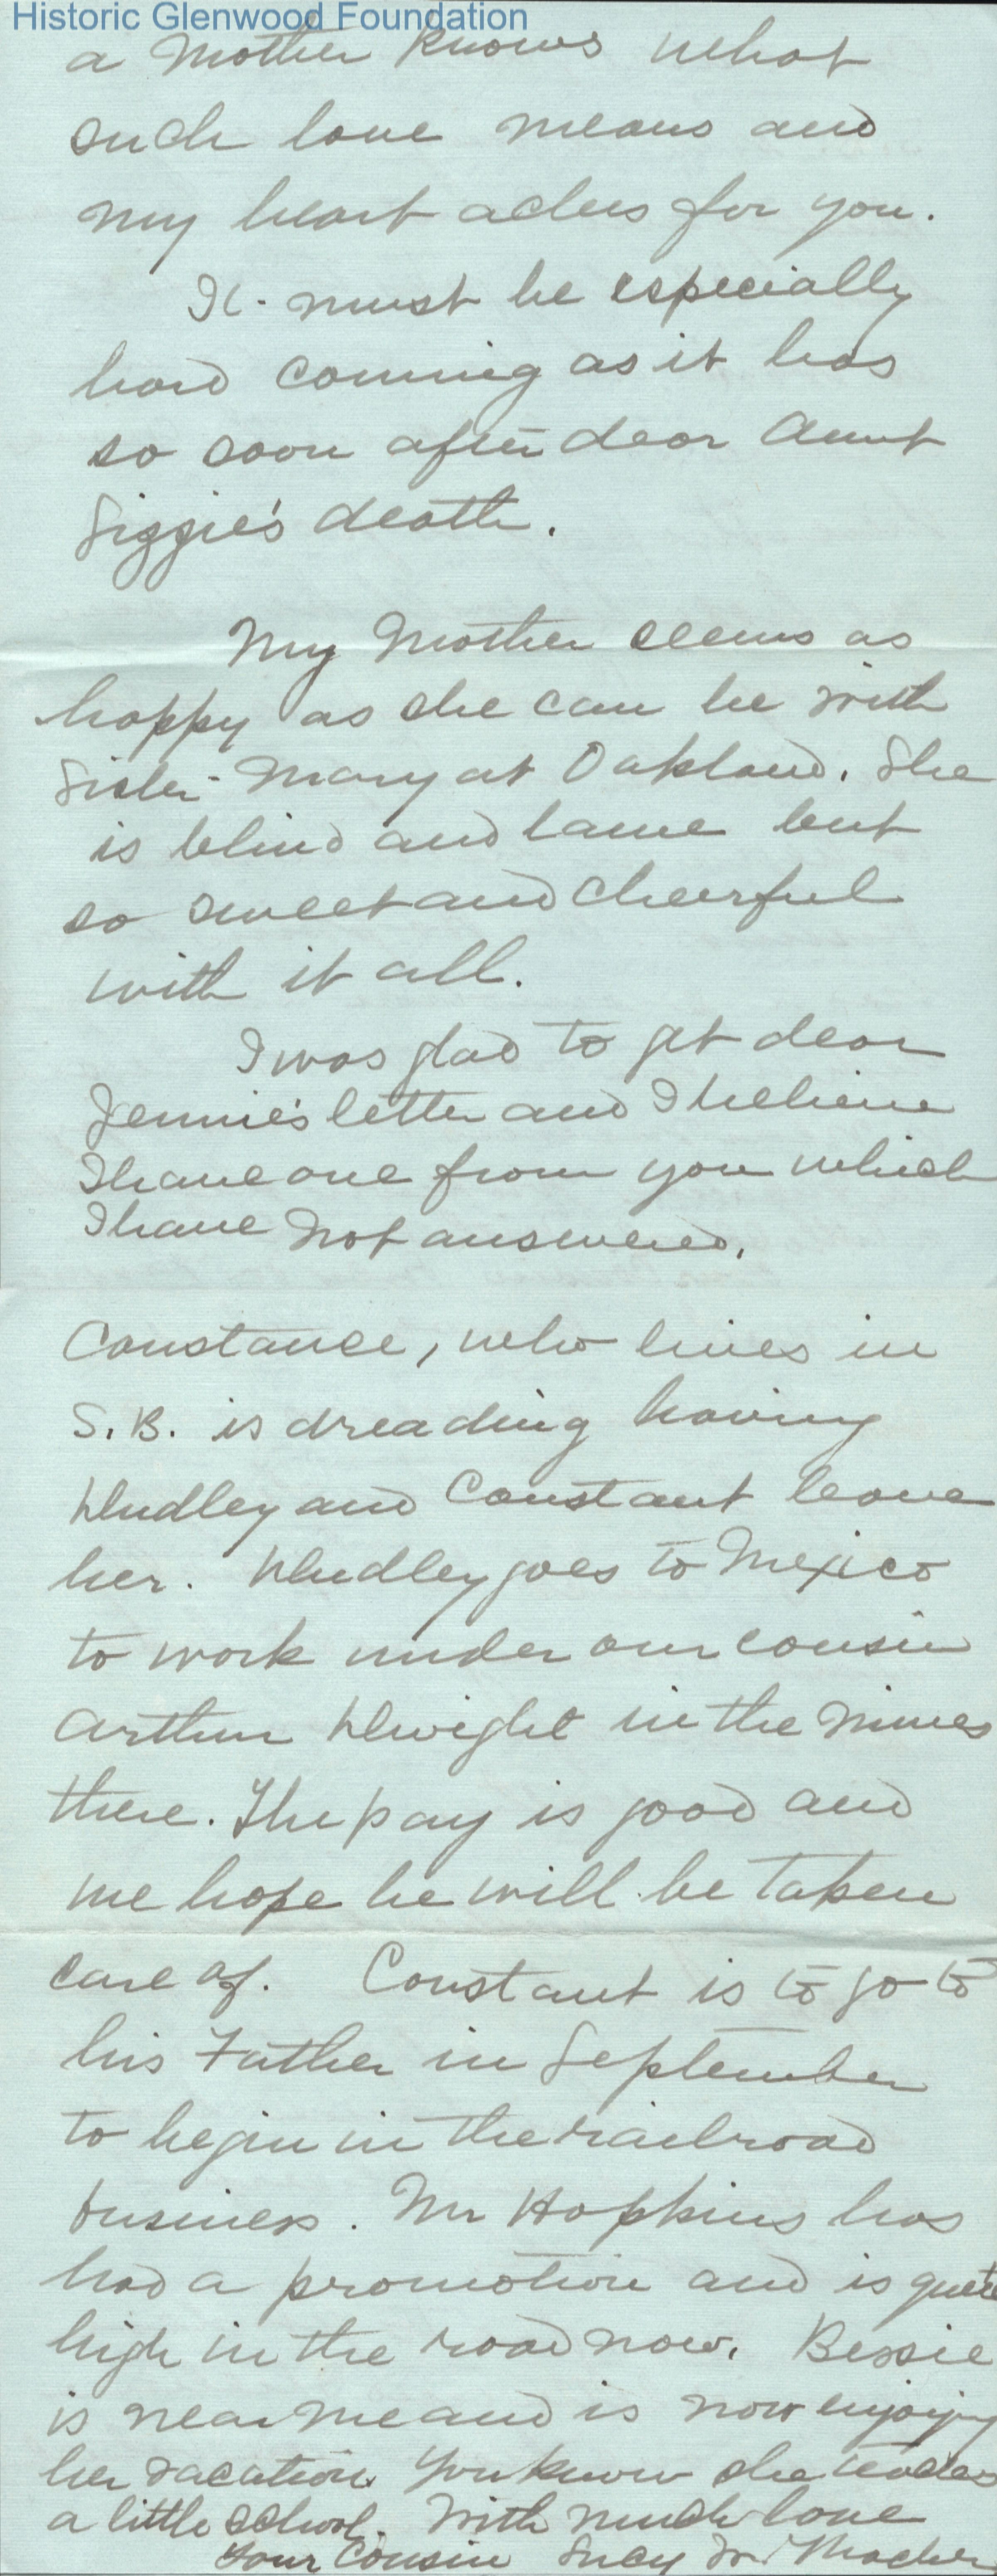 Historic Glenwood Foundation
a Mother knows what
such love means and
my heart aches for you.
It must be especially
hard coming as it has
so soon after dear Aunt
Siggie's death.
My Mother seems as
happy as she can be with
Sister Mary at Oakland. She
is blind and lame but
so sweet and cheerful
with it all.
I was glad to get dear
Jennie's letter and I believe
I have one from you which
I have not answered.
Constance, who lives in
S.B. is dreading having
Dudley and Constant leave
her. Dudley goes to Mexico
to work under our cousin
Arthur Dwight in the mines
there. The pay is good and
we hope he will be taken
care of. Constant is to go to
his Father in September
to begin in the railroad
business. Mr Hopkins has
had a promotion and is quite
high in the road now. Bessie
is near me and is now enjoying
her vacation. You know she teaches
a little school. With much love
Your Cousin Lucy